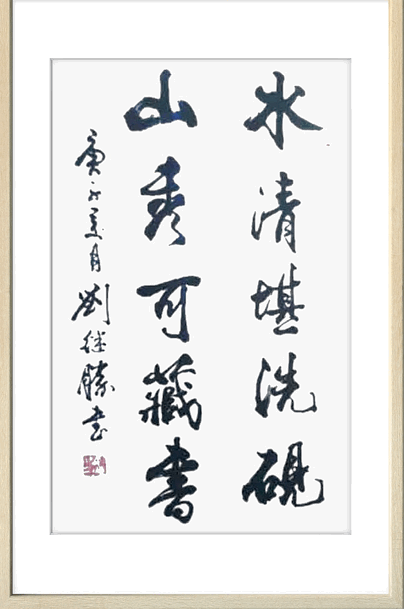 水清堪洗硯
山秀可藏書
庚子夏月劉继勝书